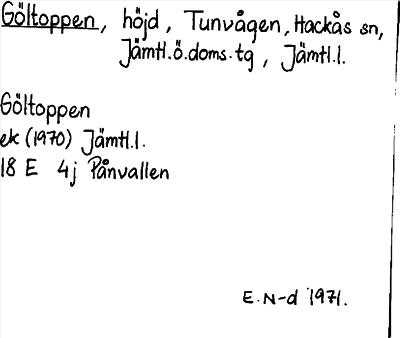 Göltoppen, höjd, Tunvågen, Hackås sn,
Jämtl.ö.doms.tg, Jämtl.l.
Göltoppen
ek (1970) Jämtl.l.
18 E 4j Pånvallen
E.N-d 1971.